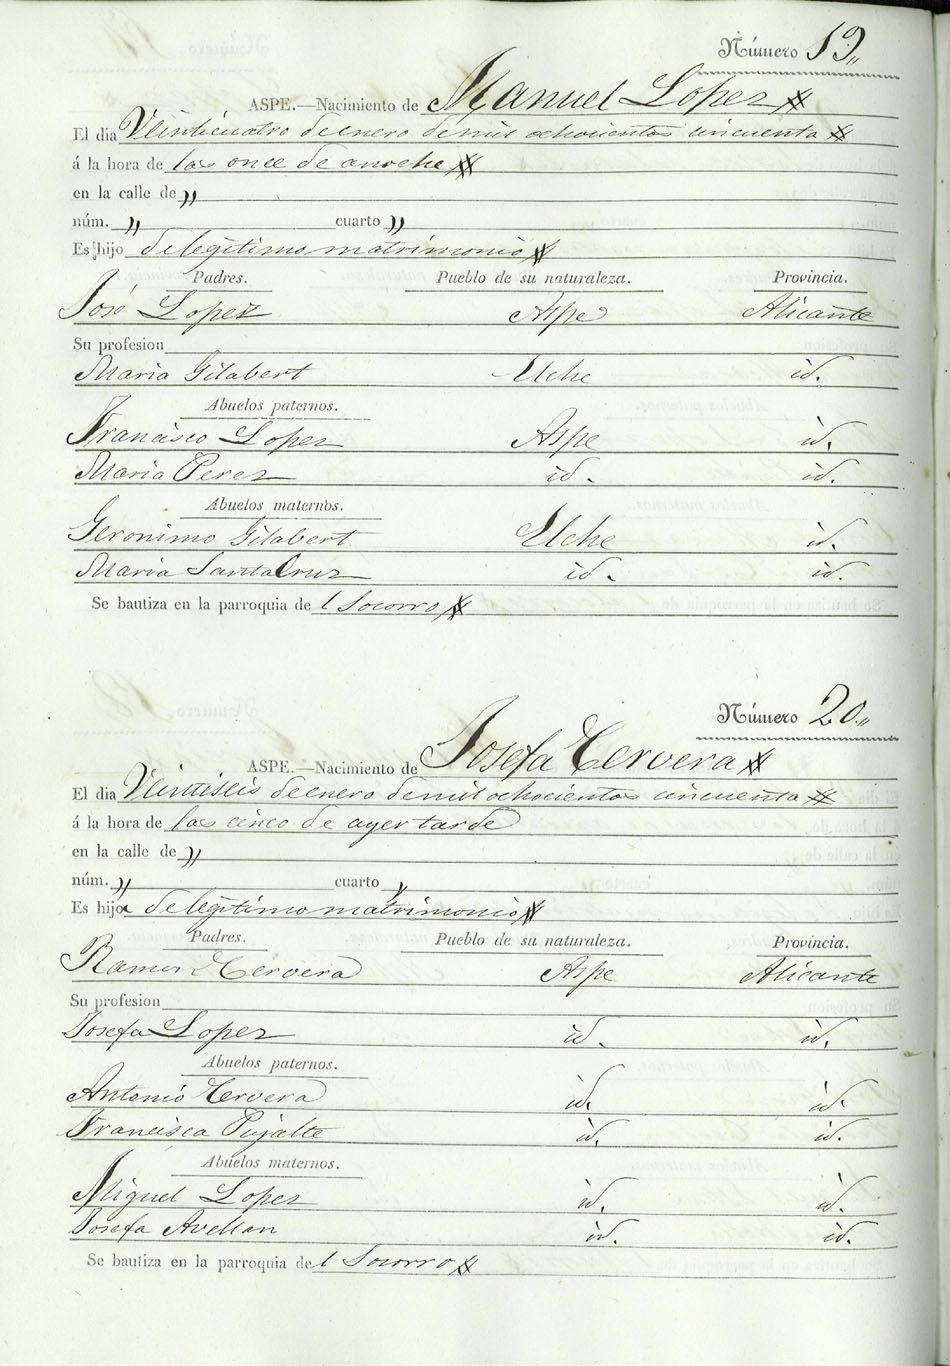 Número 19,,
ASPE.—Nacimiento de Manuel Lopez
El dia Veinticuatro de enero de mil ochocientos cincuenta
á la hora de las once de anoche
en la calle de ,,
núm. ,, cuarto ,,
Es hijo de legitimo matrimonio
Padres. Pueblo de su naturaleza. Provincia.
José Lopez Aspe Alicante
Su profesion
Maria Gilabert Elche id.
Abuelos paternos.
Francisco Lopez Aspe id.
Maria Perez id. id.
Abuelos maternos.
Geronimo Gilabert Elche id.
Maria SantaCruz id. id.
Se bautiza en la parroquia de l Socorro
Número 20,,
ASPE.—Nacimiento de Josefa Cervera
El dia Veintiseis de enero de mil ochocientos cincuenta
á la hora de las cinco de ayer tarde
en la calle de ,,
núm. ,, cuarto ,,
Es hija de legitimo matrimonio
Padres. Pueblo de su naturaleza. Provincia.
Ramon Cervera Aspe Alicante
Su profesion
Josefa Lopez id. id.
Abuelos paternos.
Antonio Cervera id. id.
Francisca Pujalte id. id.
Abuelos maternos.
Miguel Lopez id. id.
Josefa Avellan id. id.
Se bautiza en la parroquia de l Socorro